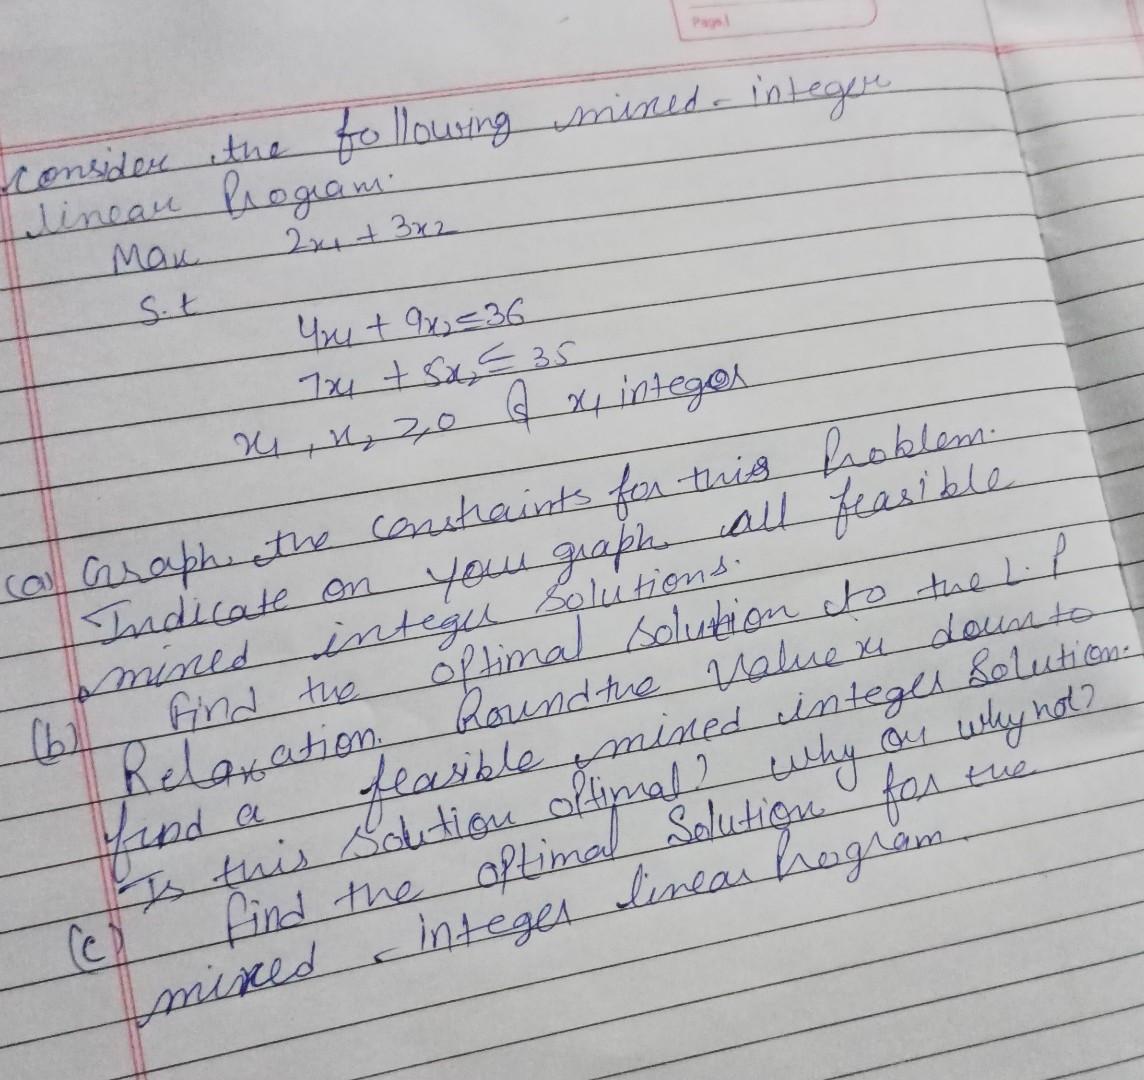 Page
Consider the following mixed-integer
linear Program.
Max 2x₁ + 3x₂
S.t
4x₁ + 9x₂ ≤ 36
7x₁ + 5x₂ ≤ 35
x₁, x₂ ≥, 0 & x₁ integer
(a) Graph the constraints for this Problem.
Indicate on your graph all feasible
mixed integer solutions.
(b) Find the optimal solution to the L.P
Relaxation. Round the Value x₁ down to
find a feasible mixed integer solution.
Is this solution optimal? why or why not?
(c) find the optimal solution for the
mixed - integer linear Program.